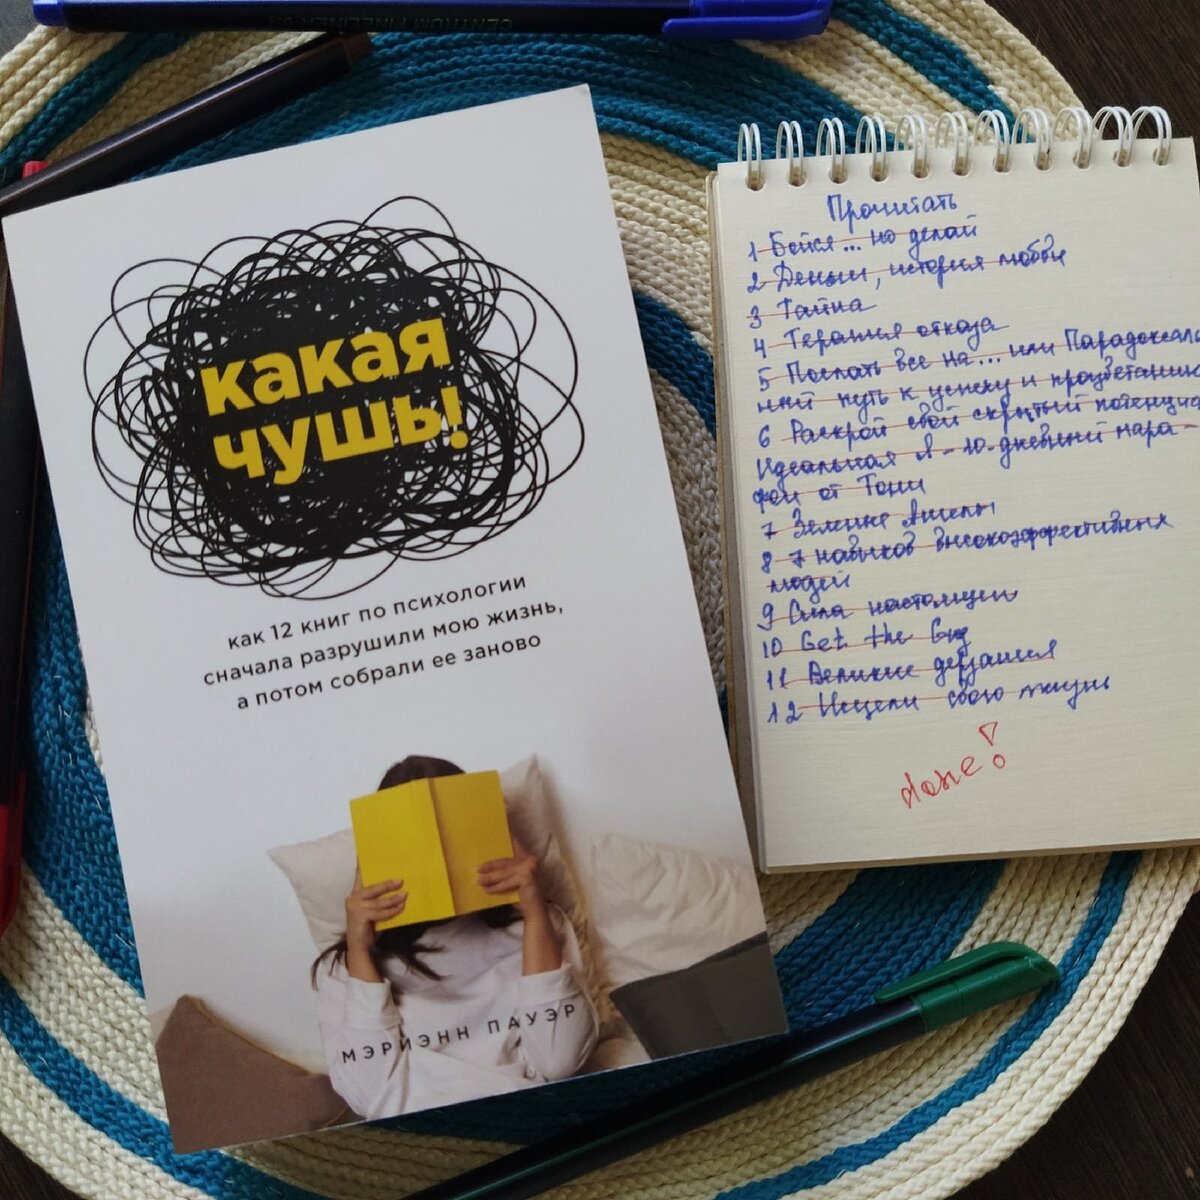 CENTRUM FINELINER
какая
чушь!
как 12 книг по психологии
сначала разрушили мою жизнь,
а потом собрали ее заново
МЭРИЭНН ПАУЭР
Прочитать
1 Бойся... но делай
2 Деньги, история любви
3 Тайна
4 Терапия отказа
5 Послать все на... или Парадоксаль
ный путь к успеху и процветанию
6 Раскрой свой скрытый потенциа
Идеальная Я - 10-дневный мара-
фон от Тони
7 Зелёные Ангелы
8 7 навыков высокоэффективных
людей
9 Сила настоящего
10 Get the Guy
11 Великие дерзания
12 Исцели свою жизнь
done!